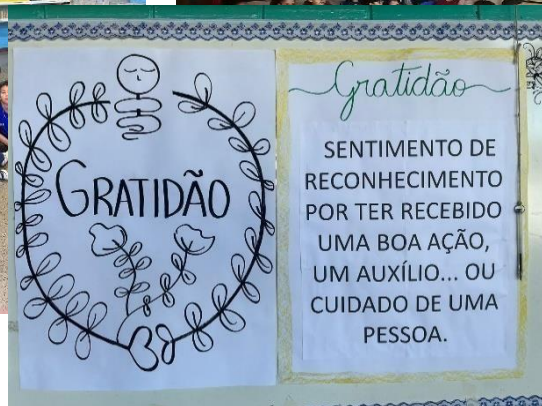 GRATIDÃO
Gratidão
SENTIMENTO DE
RECONHECIMENTO
POR TER RECEBIDO
UMA BOA AÇÃO,
UM AUXÍLIO... OU
CUIDADO DE UMA
PESSOA.